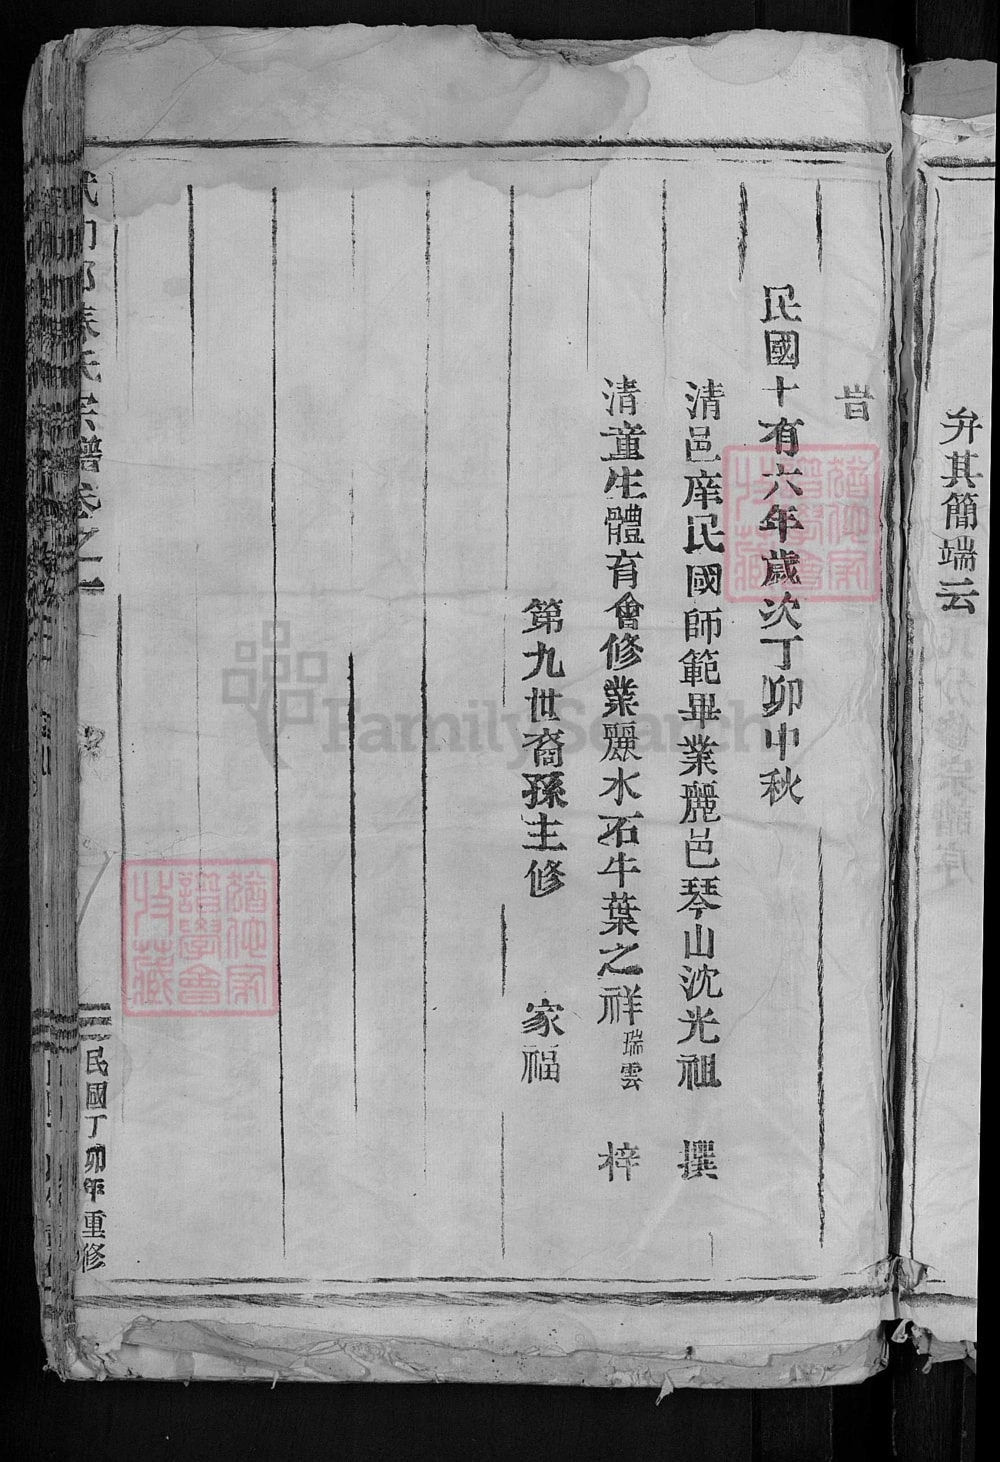 弁其簡端云
旹
民國十有六年歲次丁卯中秋
清邑庠民國師範畢業麗邑琴山沈光祖 撰
清童生體育會修業麗水石牛葉之祥瑞雲 梓
第九世裔孫主修 家福
氏宗譜卷之一
民國丁卯年重修
FamilySearch